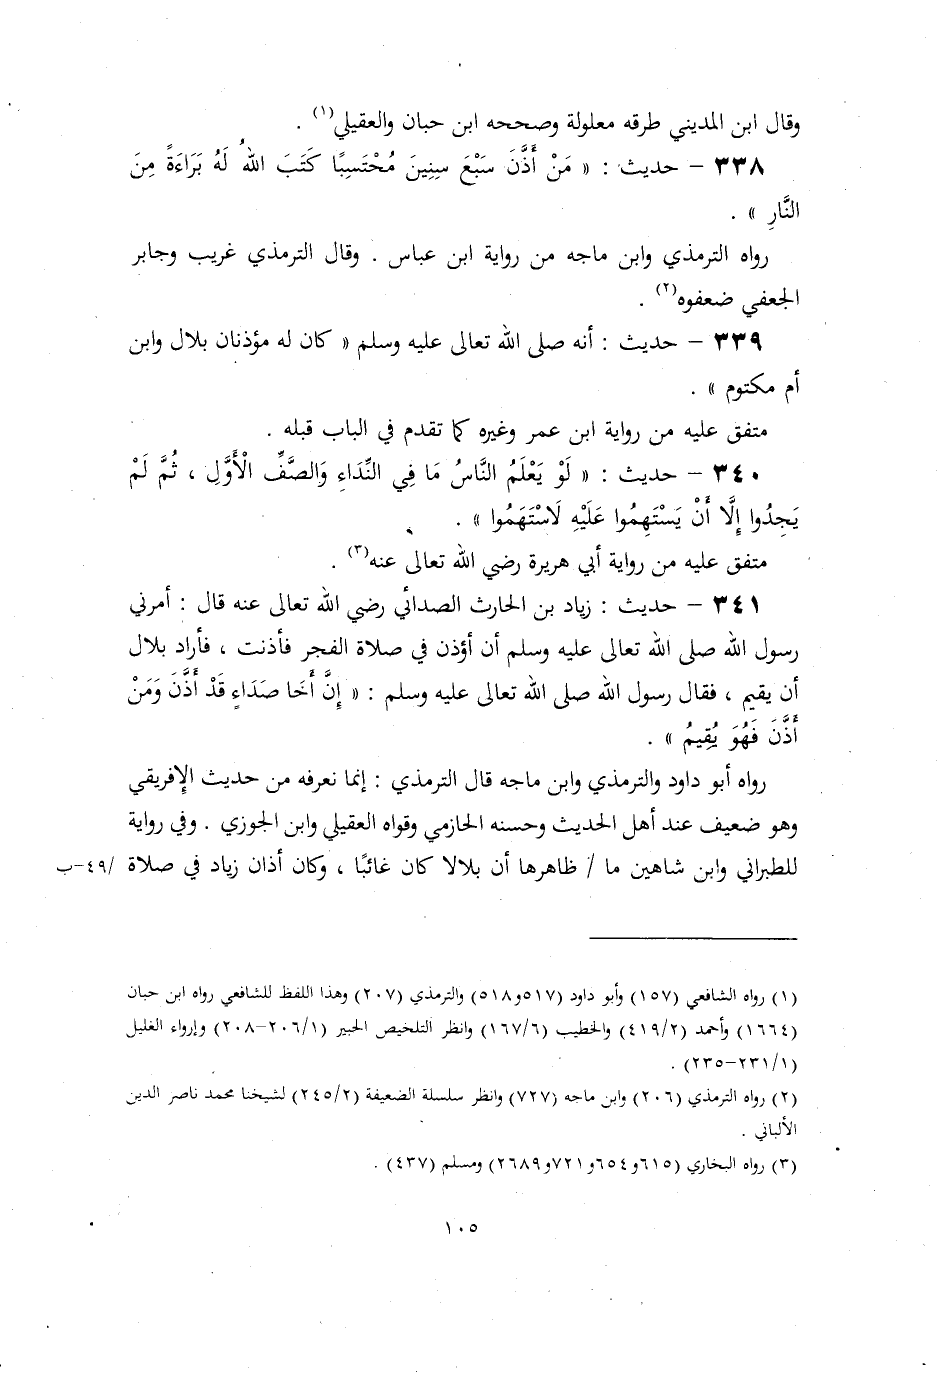 وقال ابن المديني طرقه معلولة وصححه ابن حبان والعقيلي(١) .
٣٣٨ – حديث : « مَنْ أَذَّنَ سَبْعَ سِنِينَ مُحْتَسِبًا كَتَبَ اللهُ لَهُ بَرَاءَةً مِنَ
النَّارِ » .
رواه الترمذي وابن ماجه من رواية ابن عباس . وقال الترمذي غريب وجابر
الجعفي ضعفوه(٢) .
٣٣٩ – حديث : أنه صلى الله تعالى عليه وسلم « كان له مؤذنان بلال وابن
أم مكتوم » .
متفق عليه من رواية ابن عمر وغيره كما تقدم في الباب قبله .
٣٤٠ – حديث : « لَوْ يَعْلَمُ النَّاسُ مَا فِي النِّدَاءِ وَالصَّفِّ الْأَوَّلِ ، ثُمَّ لَمْ
يَجِدُوا إِلَّا أَنْ يَسْتَهِمُوا عَلَيْهِ لَاسْتَهَمُوا » .
متفق عليه من رواية أبي هريرة رضي الله تعالى عنه(٣) .
٣٤١ – حديث : زياد بن الحارث الصدائي رضي الله تعالى عنه قال : أمرني
رسول الله صلى الله تعالى عليه وسلم أن أؤذن في صلاة الفجر فأذنت ، فأراد بلال
أن يقيم ، فقال رسول الله صلى الله تعالى عليه وسلم : « إِنَّ أَخَا صَدَاءٍ قَدْ أَذَّنَ وَمَنْ
أَذَّنَ فَهُوَ يُقِيمُ » .
رواه أبو داود والترمذي وابن ماجه قال الترمذي : إنما نعرفه من حديث الإفريقي
وهو ضعيف عند أهل الحديث وحسنه الحازمي وقواه العقيلي وابن الجوزي . وفي رواية
للطبراني وابن شاهين ما / ظاهرها أن بلالا كان غائبًا ، وكان أذان زياد في صلاة /٤٩-ب
(١) رواه الشافعي (١٥٧) وأبو داود (٥١٧و٥١٨) والترمذي (٢٠٧) وهذا اللفظ للشافعي رواه ابن حبان
(١٦٦٤) وأحمد (٤١٩/٢) والخطيب (١٦٧/٦) وانظر التلخيص الحبير (٢٠٦/١–٢٠٨) وإرواء الغليل
(٢٣١/١–٢٣٥) .
(٢) رواه الترمذي (٢٠٦) وابن ماجه (٧٢٧) وانظر سلسلة الضعيفة (٢٤٥/٢) لشيخنا محمد ناصر الدين
الألباني .
(٣) رواه البخاري (٦١٥و٦٥٤و٧٢١و٢٦٨٩) ومسلم (٤٣٧) .
١٠٥